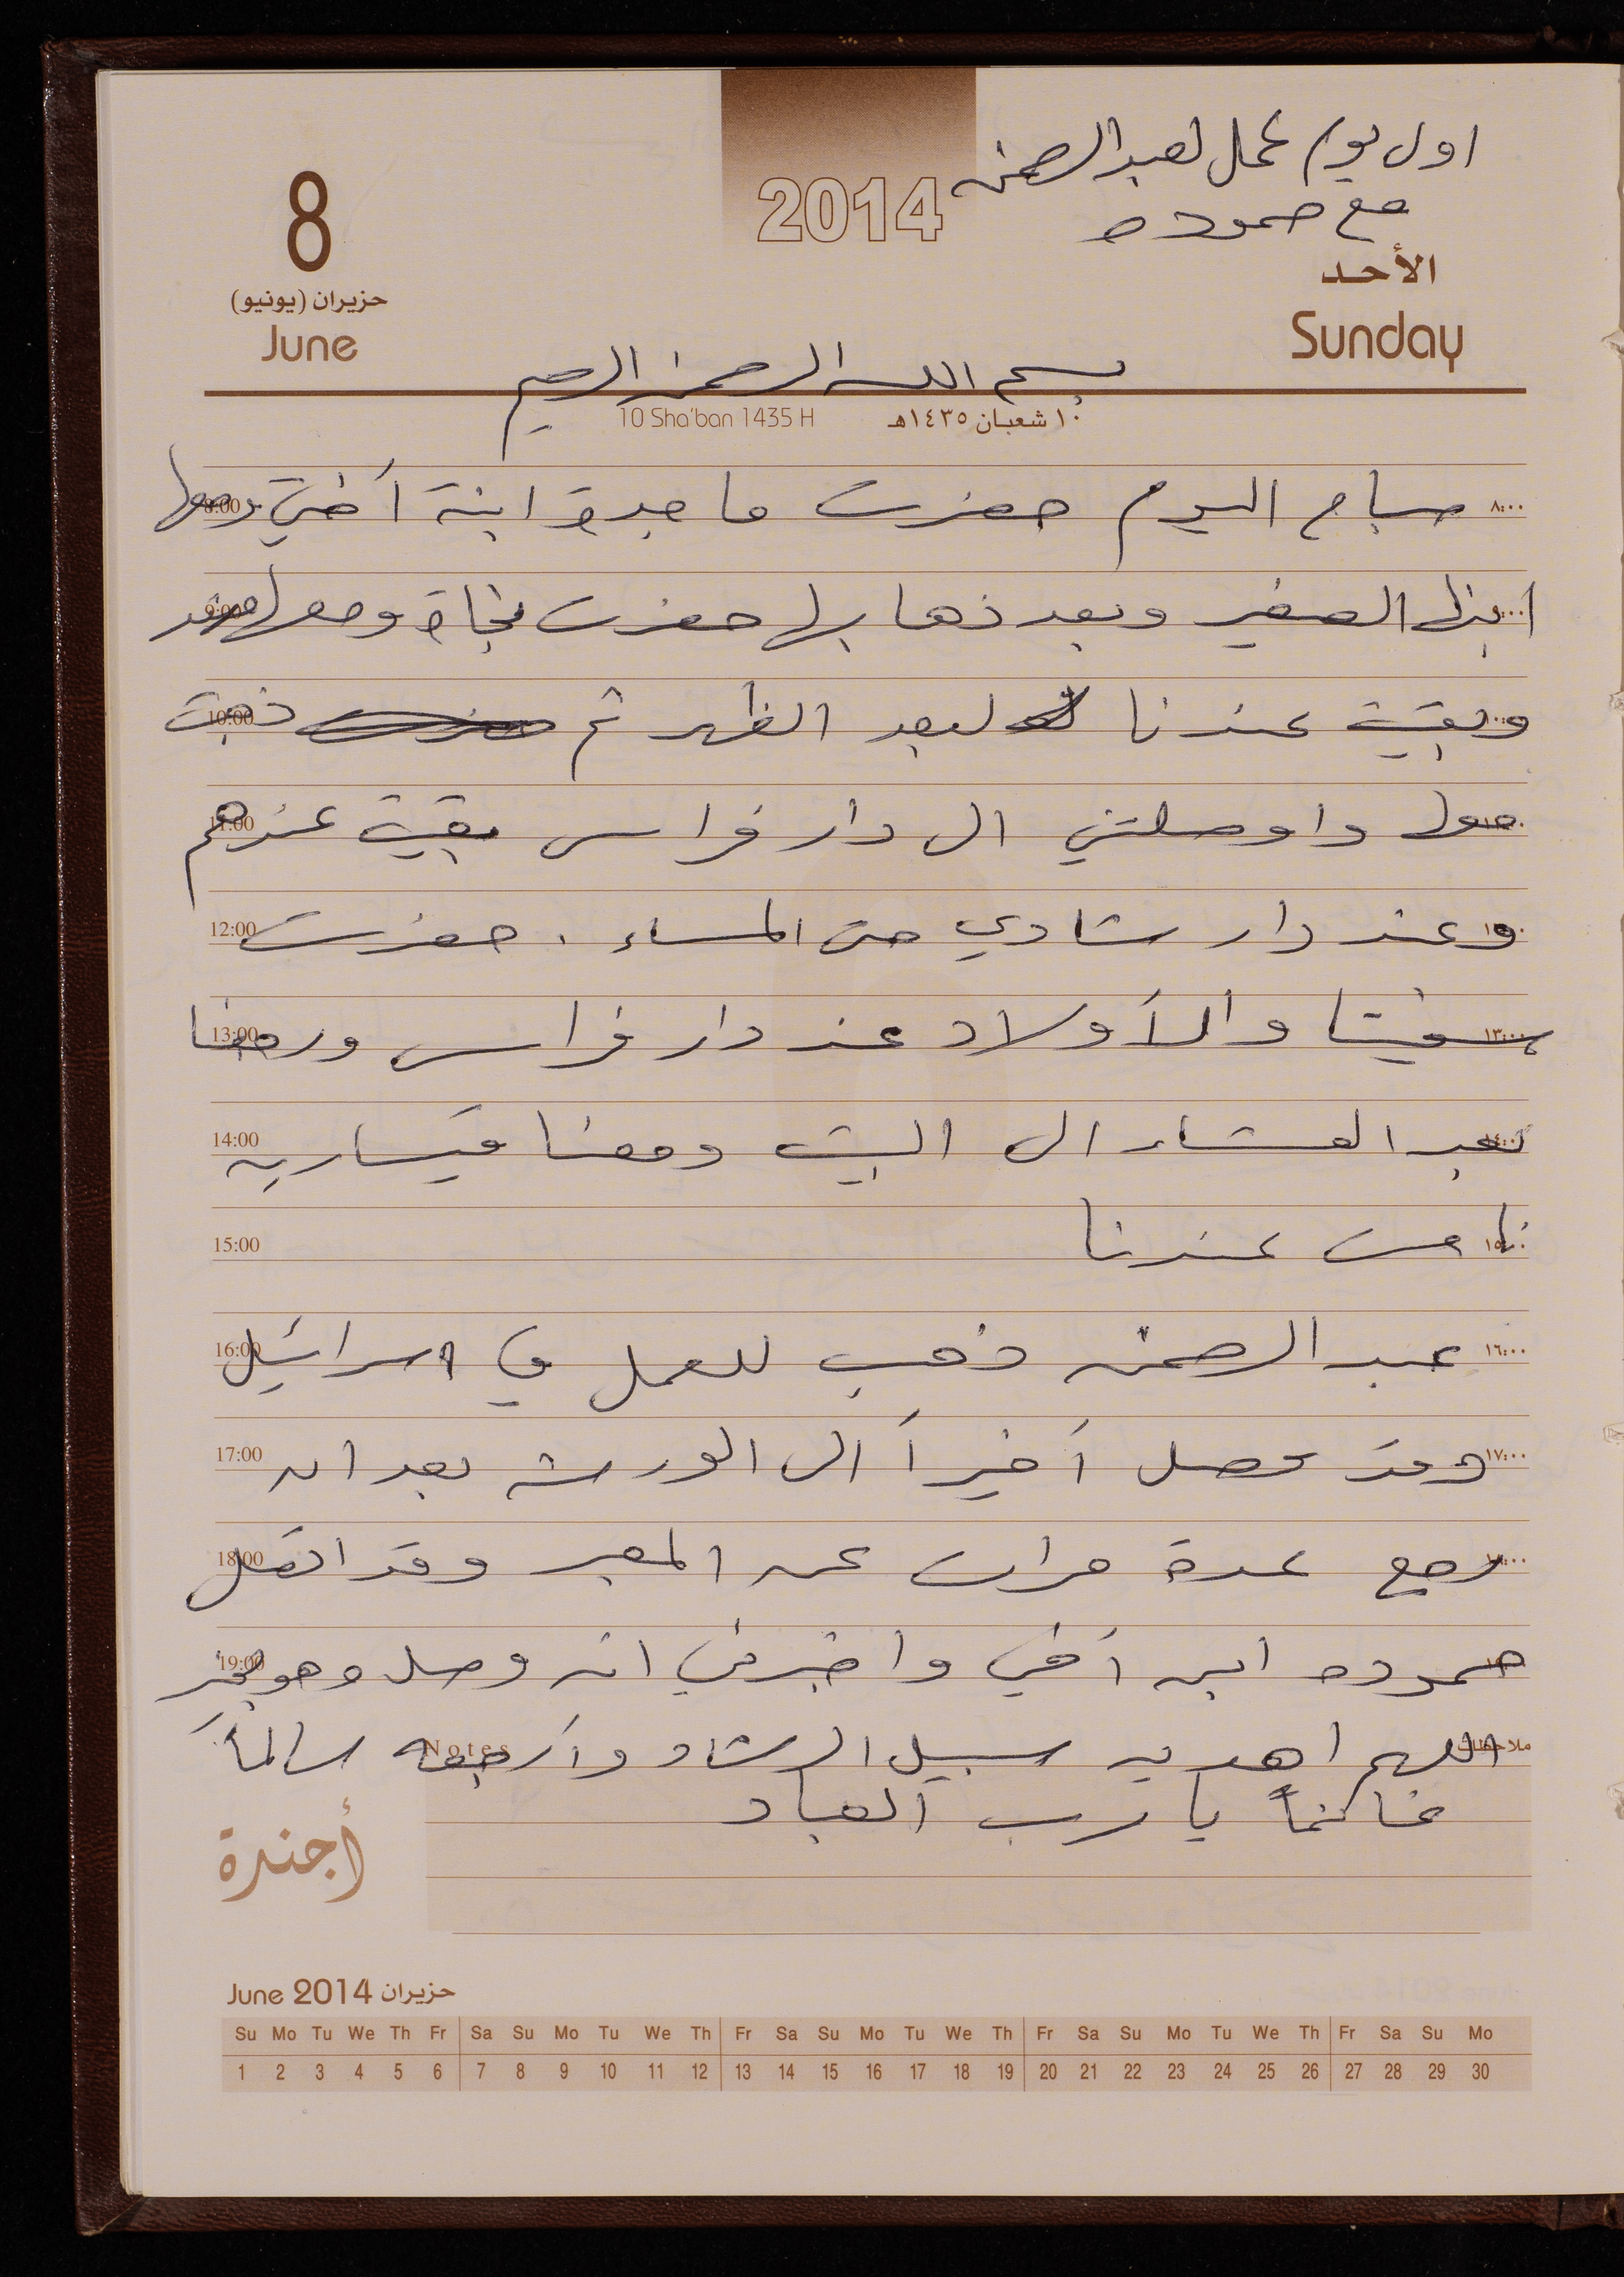 اول يوم عمل لعبد الرحمن
مع حموده
8
2014
حزيران (يونيو)
الأحد
June
Sunday
بسم الله الرحمن الرحيم
10 Sha'ban 1435 H
١٠ شعبان ١٤٣٥هـ
٨:٠٠ صباح اليوم حضرت ماجدة ابنة أختي ومعها 8:00
ابنها الصغير وبعد ذهابها حضرت نجاة ومعها 9:00
وبقيت عندنا لبعد الظهر ثم ذهبت 10:00
معها واوصلتني الى دار فراس بقيت عندهم 11:00
وعند دار شادي حتى المساء . حضرت 12:00
١٣:٠٠ والأولاد عند دار فراس ورجعنا 13:00
بعد العشاء الى البيت ومعنا قيساريه 14:00
نامت عندنا 15:00
١٦:٠٠ عبد الرحمن ذهب للعمل في اسرائيل 16:00
١٧:٠٠ وقد وصل أخيراً الى الورشه بعد ان 17:00
رجع عدة مرات عن المعبر وقد اتصل 18:00
حموده ابن أختي واخبرني انه وصل وهو بخير 19:00
ملاحظات اللهم اهديه سبيل الرشاد وأرجعه سالماً Notes
غانماً يا رب العباد
أجندة
June 2014 حزيران
Su Mo Tu We Th Fr Sa Su Mo Tu We Th Fr Sa Su Mo Tu We Th Fr Sa Su Mo Tu We Th Fr Sa Su Mo
1 2 3 4 5 6 7 8 9 10 11 12 13 14 15 16 17 18 19 20 21 22 23 24 25 26 27 28 29 30